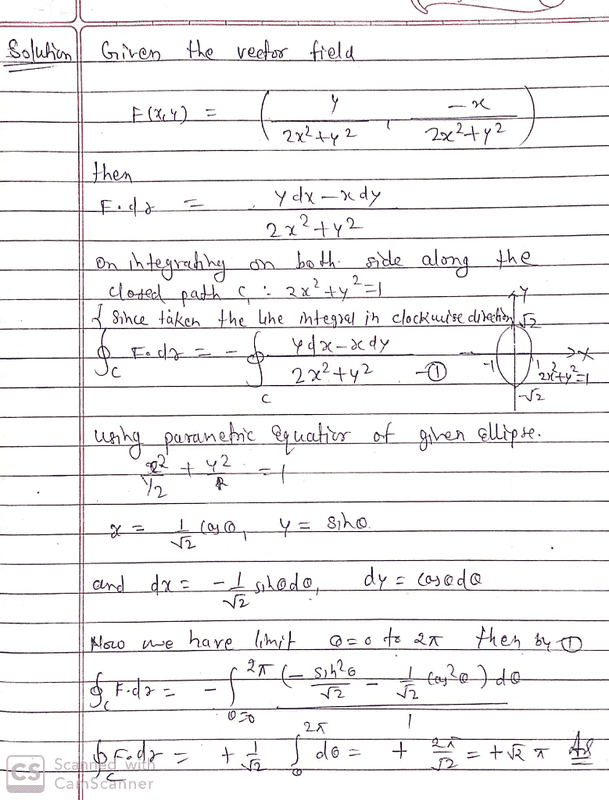 Solution Given the vector field
F(x,y) = ( y / 2x²+y² , -x / 2x²+y² )
then
F.dr = ydx - xdy / 2x²+y²
on integrating on both side along the
closed path C, : 2x²+y²=1
{ Since taken the line integral in clockwise direction
∮_C F.dr = - ∮_C ydx - xdy / 2x²+y² -①
Y
√2
-1 1 X
2x²+y²=1
-√2
using parametric equation of given ellipse.
x²/½ + y²/1 = 1
x = 1/√2 cosθ, y = sinθ
and dx = -1/√2 sinθdθ, dy = cosθdθ
Now we have limit θ=0 to 2π then by ①
∮_C F.dr = - ∫_{θ=0}^{2π} (- sin²θ/√2 - 1/√2 cos²θ) dθ / 1
∮_C F.dr = + 1/√2 ∫_0^{2π} dθ = + 2π/√2 = +√2 π Ans
CS Scanned with
CamScanner